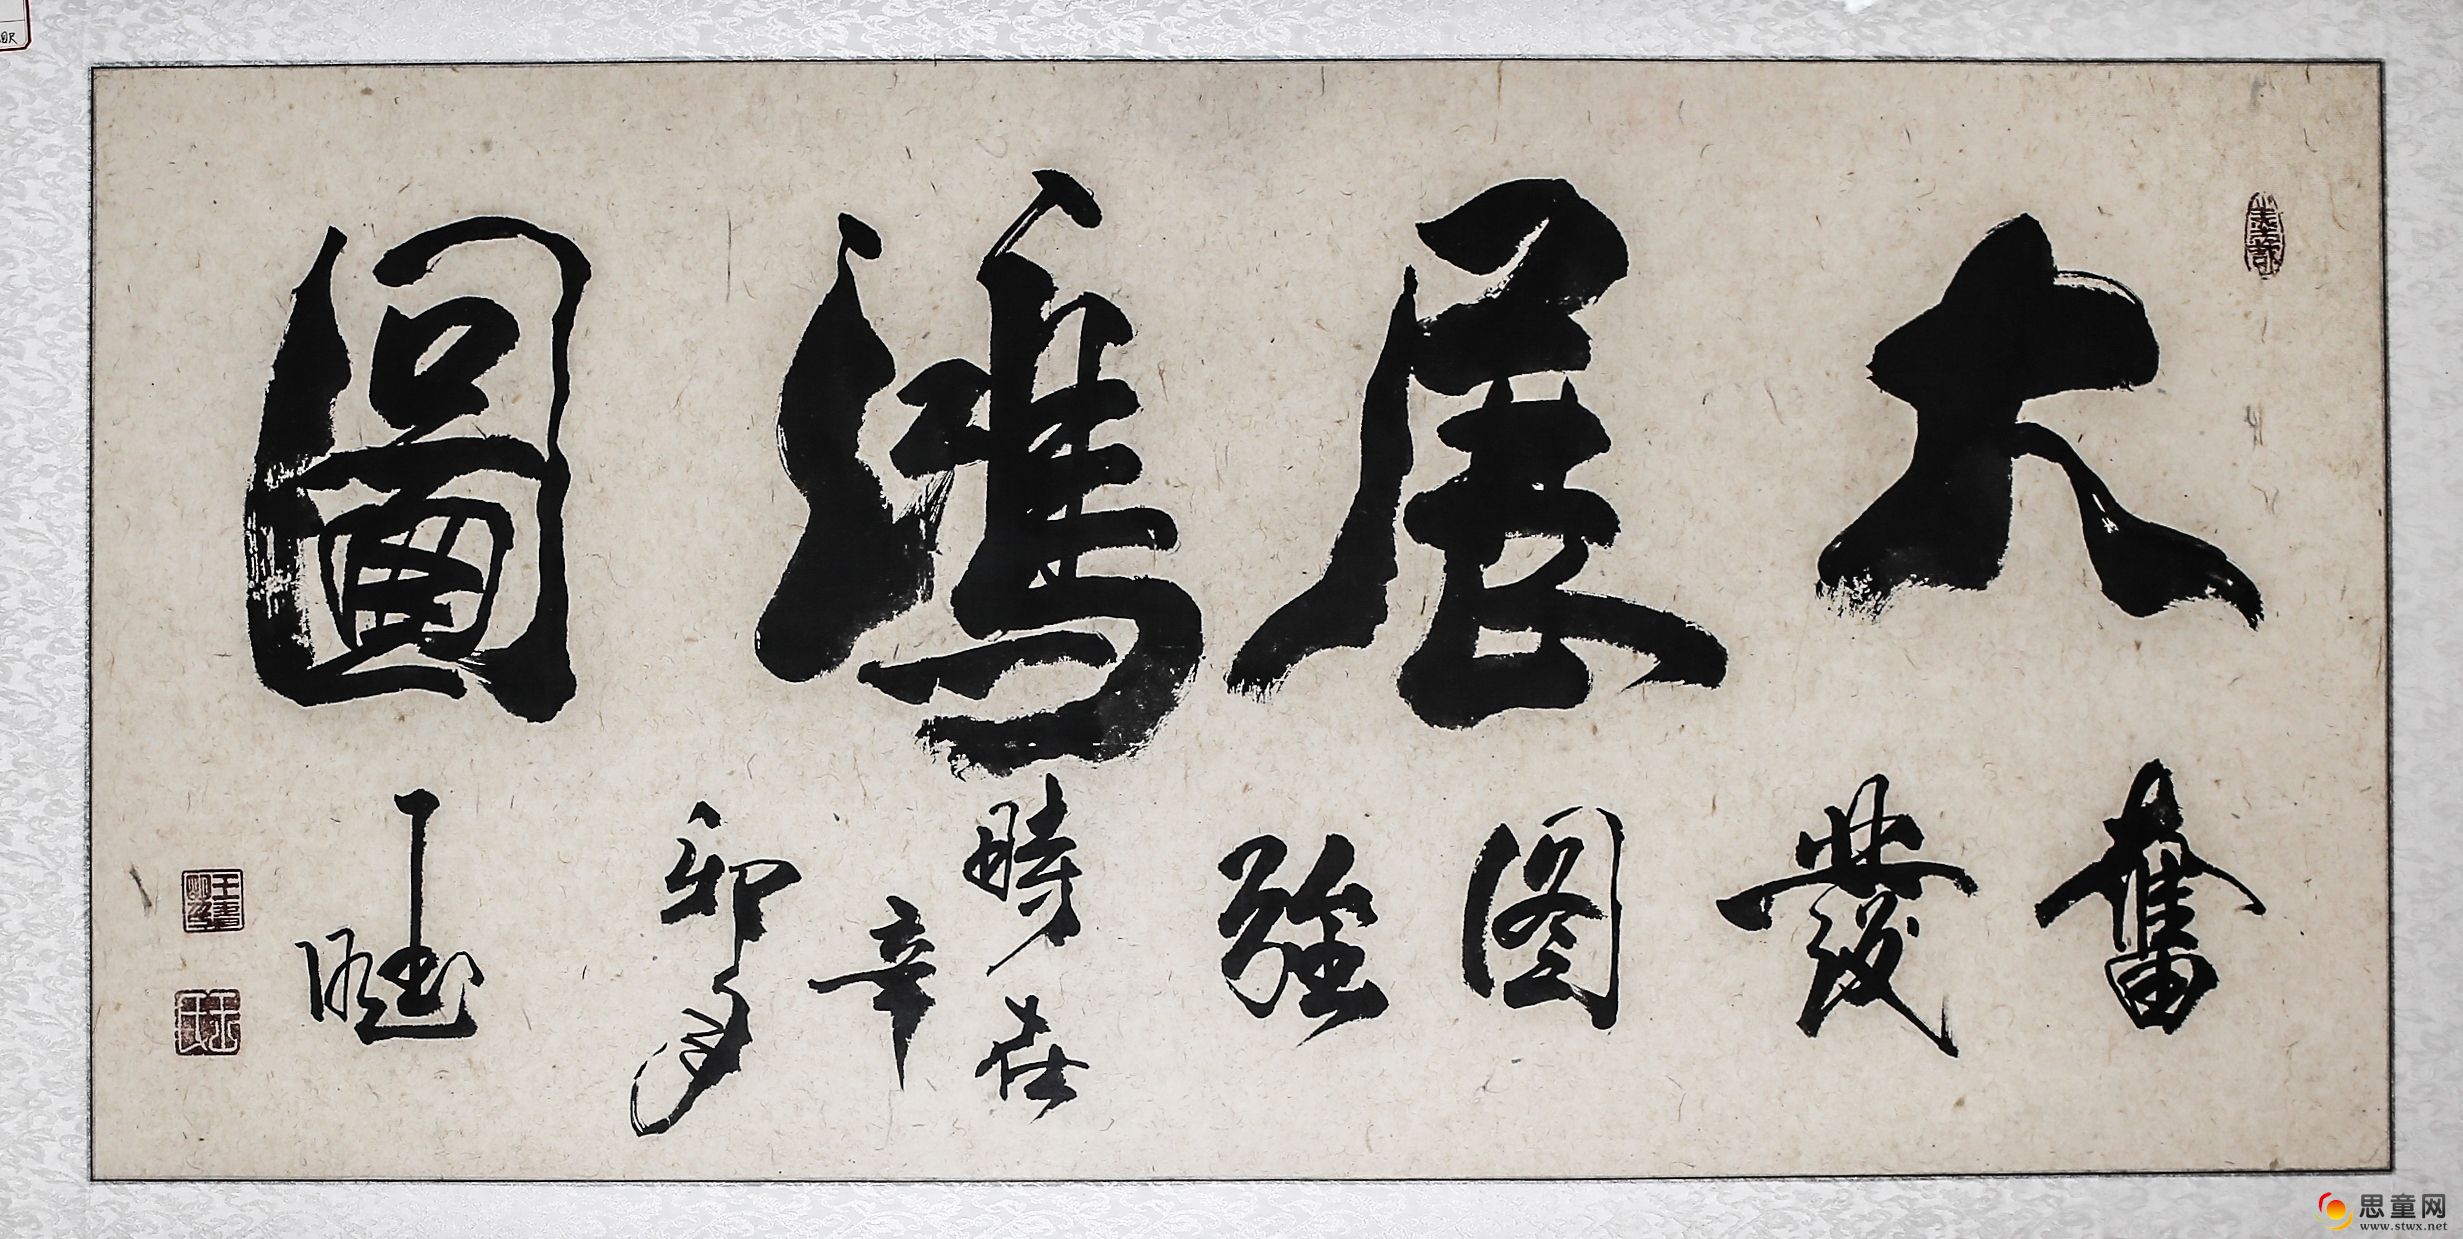 大展鴻圖
奮發图強
時在
辛
卯冬
思童网
www.stwx.net